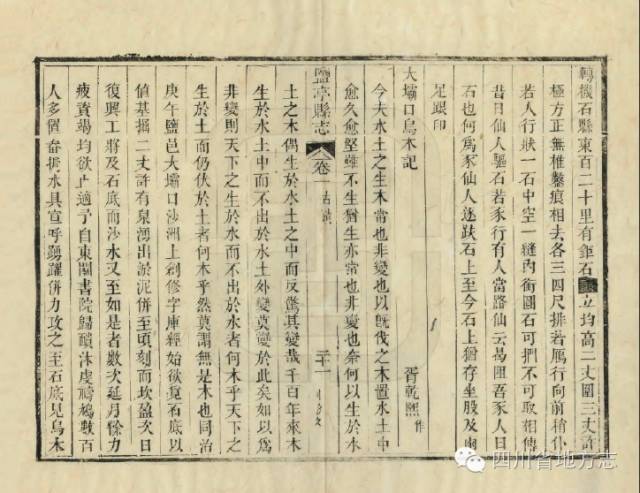 轉機石縣東百二十里有鉅石立均高二丈圍三丈許
極方正無椎鑿痕相去各三四尺排若鴈行向前稍仆
若人行狀一石中空一縫內銜圓石可捫不可取相傳
昔日仙人驅石若豕行有人當路仙云曷阻吾豕人曰
石也何爲豕仙人遂趺石上至今石上猶存坐股及兩
足跟印
大壩口烏木記
胥乾熙作
今夫水土之生木常也非變也以旣伐之木置水土中
愈久愈堅雖不生猶生亦常也非變也奈何以生於水
鹽亭縣志
卷一
古蹟
二十一
土之木偶生於水土中而反驚其變哉千百年來木
生於水土中而不出於水土外變莫變於此矣如以爲
非變則天下之生於水而不出於水者何木乎天下之
生於土而仍伏於土者何木乎然莫謂無是木也同治
庚午鹽邑大壩口沙洲上剏修字庫經始欲覓石底以
値基掘二丈許有泉湧出淤泥併至頃刻而坎盈次日
復興工將及石底而沙水又至如是者數次延月餘力
疲資竭均欲亡適予自東關書院歸醵沐虔禱鳩數百
人多置畚挶水具宣呼踴躍併力攻之至石底見烏木
四川省地方志